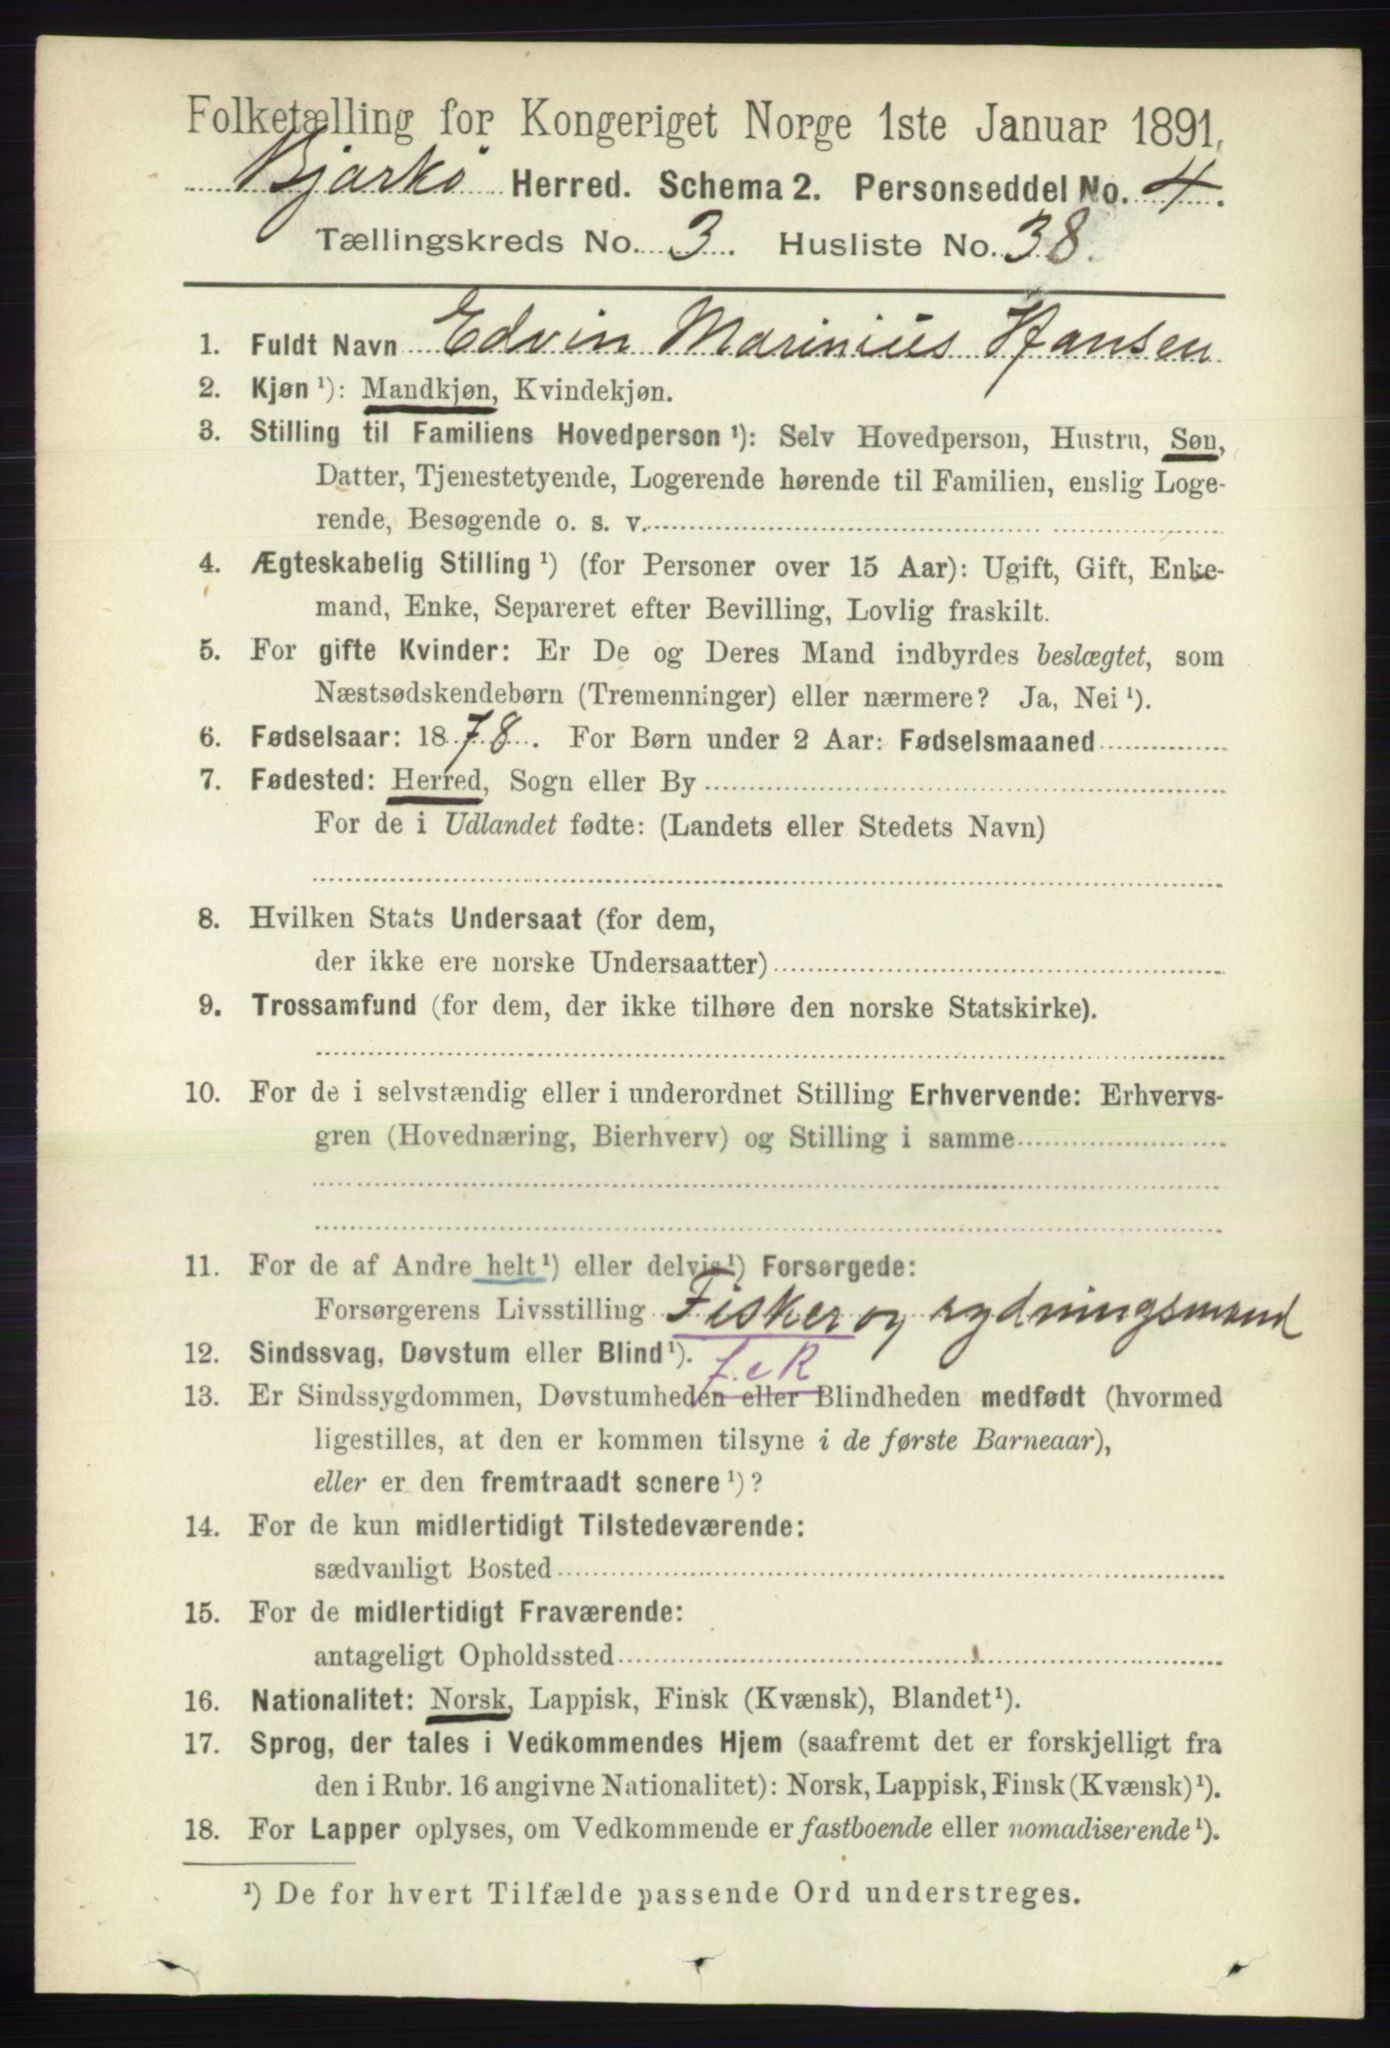 Folketælling for Kongeriget Norge 1ste Januar 1891.
Bjarkø Herred. Schema 2. Personseddel No. 4.
Tællingskreds No. 3. Husliste No. 38.
1. Fuldt Navn Edvin Marinius Hansen
2. Kjøn ¹): Mandkjøn, Kvindekjøn.
3. Stilling til Familiens Hovedperson ¹): Selv Hovedperson, Hustru, Søn,
Datter, Tjenestetyende, Logerende hørende til Familien, enslig Loge-
rende, Besøgende o. s. v.
4. Ægteskabelig Stilling ¹) (for Personer over 15 Aar): Ugift, Gift, Enke-
mand, Enke, Separeret efter Bevilling, Lovlig fraskilt.
5. For gifte Kvinder: Er De og Deres Mand indbyrdes beslægtet, som
Næstsødskendebørn (Tremenninger) eller nærmere? Ja, Nei ¹).
6. Fødselsaar: 1878. For Børn under 2 Aar: Fødselsmaaned
7. Fødested: Herred, Sogn eller By
For de i Udlandet fødte: (Landets eller Stedets Navn)
8. Hvilken Stats Undersaat (for dem,
der ikke ere norske Undersaatter)
9. Trossamfund (for dem, der ikke tilhøre den norske Statskirke).
10. For de i selvstændig eller i underordnet Stilling Erhvervende: Erhvervs-
gren (Hovednæring, Bierhverv) og Stilling i samme
11. For de af Andre helt ¹) eller delvis ¹) Forsørgede:
Forsørgerens Livsstilling Fisker og rydningsmand
12. Sindssvag, Døvstum eller Blind ¹).
13. Er Sindssygdommen, Døvstumheden eller Blindheden medfødt (hvormed
ligestilles, at den er kommen tilsyne i de første Barneaar),
eller er den fremtraadt senere ¹)?
14. For de kun midlertidigt Tilstedeværende:
sædvanligt Bosted
15. For de midlertidigt Fraværende:
antageligt Opholdssted
16. Nationalitet: Norsk, Lappisk, Finsk (Kvænsk), Blandet ¹).
17. Sprog, der tales i Vedkommendes Hjem (saafremt det er forskjelligt fra
den i Rubr. 16 angivne Nationalitet): Norsk, Lappisk, Finsk (Kvænsk) ¹).
18. For Lapper oplyses, om Vedkommende er fastboende eller nomadiserende ¹).
¹) De for hvert Tilfælde passende Ord understreges.